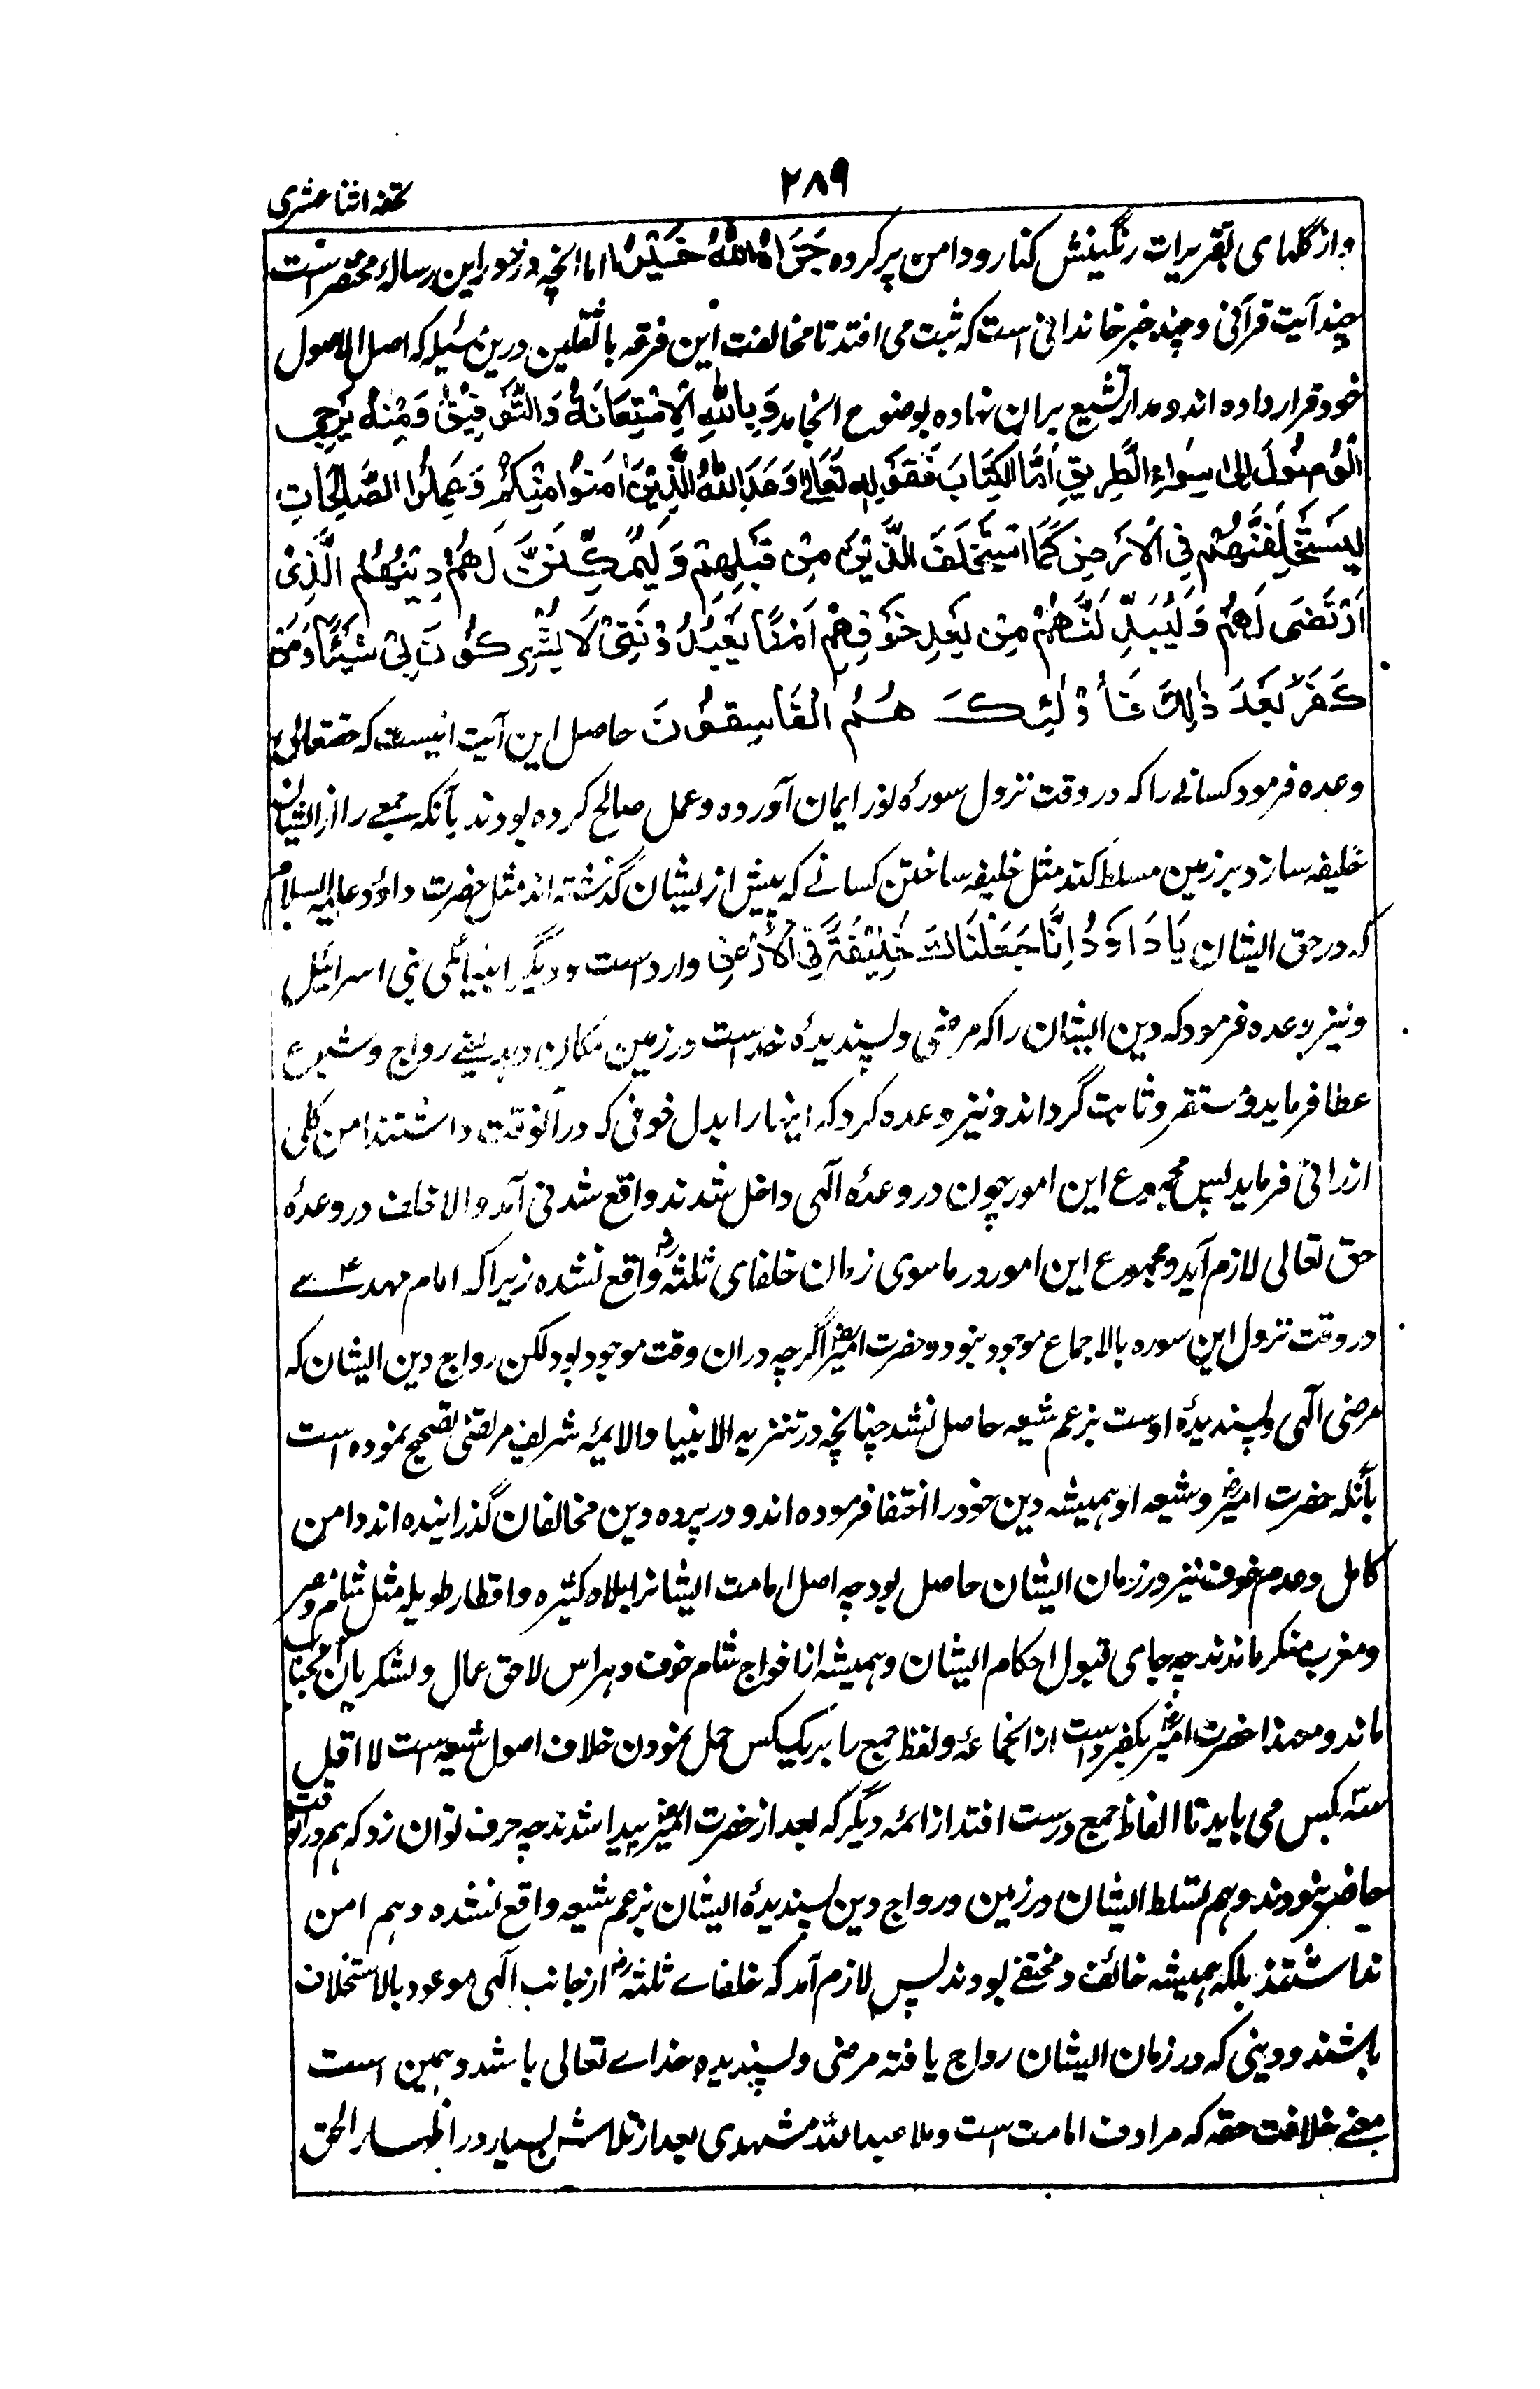 ۲۸۹
تحفه اثنا عشری
و از گلهای تقریرات رنگینش کنار و دامن پر کرده جَزَاهُ اللّٰهُ خَیْرًا اما آنچه در خور این رساله مختصر است
چند آیت قرآنی و چند خبر خاندانی است که ثبت می افتد تا مخالفت این فرقه با ثقلین درین مسئله که اصل الاصول
خود قرار داده اند و مدار تشیع بران نهاده بوضوح انجامد وَبِاللّٰهِ الْاِسْتِعَانَةُ وَالتَّوْفِیْقُ وَمِنْهُ یُرْجٰی
الْوُصُوْلُ اِلٰی سَوَاءِ الطَّرِیْقِ اَمَّا الْکِتَابَ فَقَوْلِهِ تَعَالٰی وَعَدَ اللّٰهُ الَّذِیْنَ اٰمَنُوْا مِنْکُمْ وَعَمِلُوا الصَّالِحَاتِ
لَیَسْتَخْلِفَنَّهُمْ فِی الْاَرْضِ کَمَا اسْتَخْلَفَ الَّذِیْنَ مِنْ قَبْلِهِمْ وَلَیُمَکِّنَنَّ لَهُمْ دِیْنَهُمُ الَّذِیْ
ارْتَضٰی لَهُمْ وَلَیُبَدِّلَنَّهُمْ مِنْ بَعْدِ خَوْفِهِمْ اَمْنًا یَعْبُدُوْنَنِیْ لَا یُشْرِکُوْنَ بِیْ شَیْئًا وَمَنْ
کَفَرَ بَعْدَ ذٰلِکَ فَاُوْلٰئِکَ هُمُ الْفَاسِقُوْنَ حاصل این آیت اینست که حقتعالی
وعده فرمود کسانے را که در وقت نزول سورهٔ نور ایمان آورده و عمل صالح کرده بودند بآنکه جمعے را از ایشان
خلیفه سازد و بر زمین مسلط کند مثل خلیفه ساختن کسانے که پیش از ایشان گذشته اند مثل حضرت داؤد علیه السلام
که در حق ایشان یَا دَاوٗدُ اِنَّا جَعَلْنَاکَ خَلِیْفَةً فِی الْاَرْضِ وارد است و دیگر انبیائی بنی اسرائیل
و نیز وعده فرمود که دین ایشان را که مرضی و پسندیدهٔ خداست در زمین مکان دهد یعنے رواج و شیوع
عطا فرماید و مستقر و ثابت گرداند و نیز وعده کرد که اینها را بدل خوفی که در آنوقت داشتند امن کلی
ارزانی فرماید پس مجموع این امور چون در وعدهٔ الهی داخل شدند واقع شدنی آمد والا خلف در وعدهٔ
حق تعالی لازم آید و مجموع این امور در ماسوی زمان خلفای ثلثهؓ واقع نشده زیرا که امام مهدےؑ
در وقت نزول این سوره بالاجماع موجود نبود و حضرت امیرؓ اگرچه دران وقت موجود بود لکن رواج دین ایشان که
مرضی الهی و پسندیدهٔ اوست بزعم شیعه حاصل نشد چنانچه در تنزیه الانبیا والایمه شریف مرتضی تصحیح نموده است
بآنکه حضرت امیرؓ و شیعه او همیشه دین خود را اختفا فرموده اند و در پرده دین مخالفان گذرانیده اند و امن
کامل و عدم خوف نیز در زمان ایشان حاصل بود چه اصل امامت ایشانرا بلاد کثیره و اقطار طویله مثل شام و مصر
و مغرب منکر ماندند چه جای قبول احکام ایشان و همیشه از افواج شام خوف و هراس لاحق عمال و لشکریان آنجناب
ماند و معهذا حضرت امیرؓ یکفرد است از انجماعه و لفظ جمع را بر یک کس حمل نمودن خلاف اصول شیعه است لا اقل
سه کس می باید تا الفاظ جمع درست افتد از ائمه دیگر که بعد از حضرت امیرؓ پیدا شدند چه حرف توان زد که هم در آنوقت
حاضر نبودند و هم تسلط ایشان در زمین و رواج دین پسندیدهٔ ایشان بزعم شیعه واقع نشده و هم امن
نداشتند بلکه همیشه خائف و مختفے بودند پس لازم آمد که خلفاے ثلثهؓ از جانب الهی موعود بالاستخلاف
باشند و دینی که در زمان ایشان رواج یافته مرضی و پسندیده خداے تعالی باشد و همین است
معنے خلافت حقه که مرادف امامت است و ملا عبد الله مشهدی بعد از تلاش بسیار در اظهار الحق